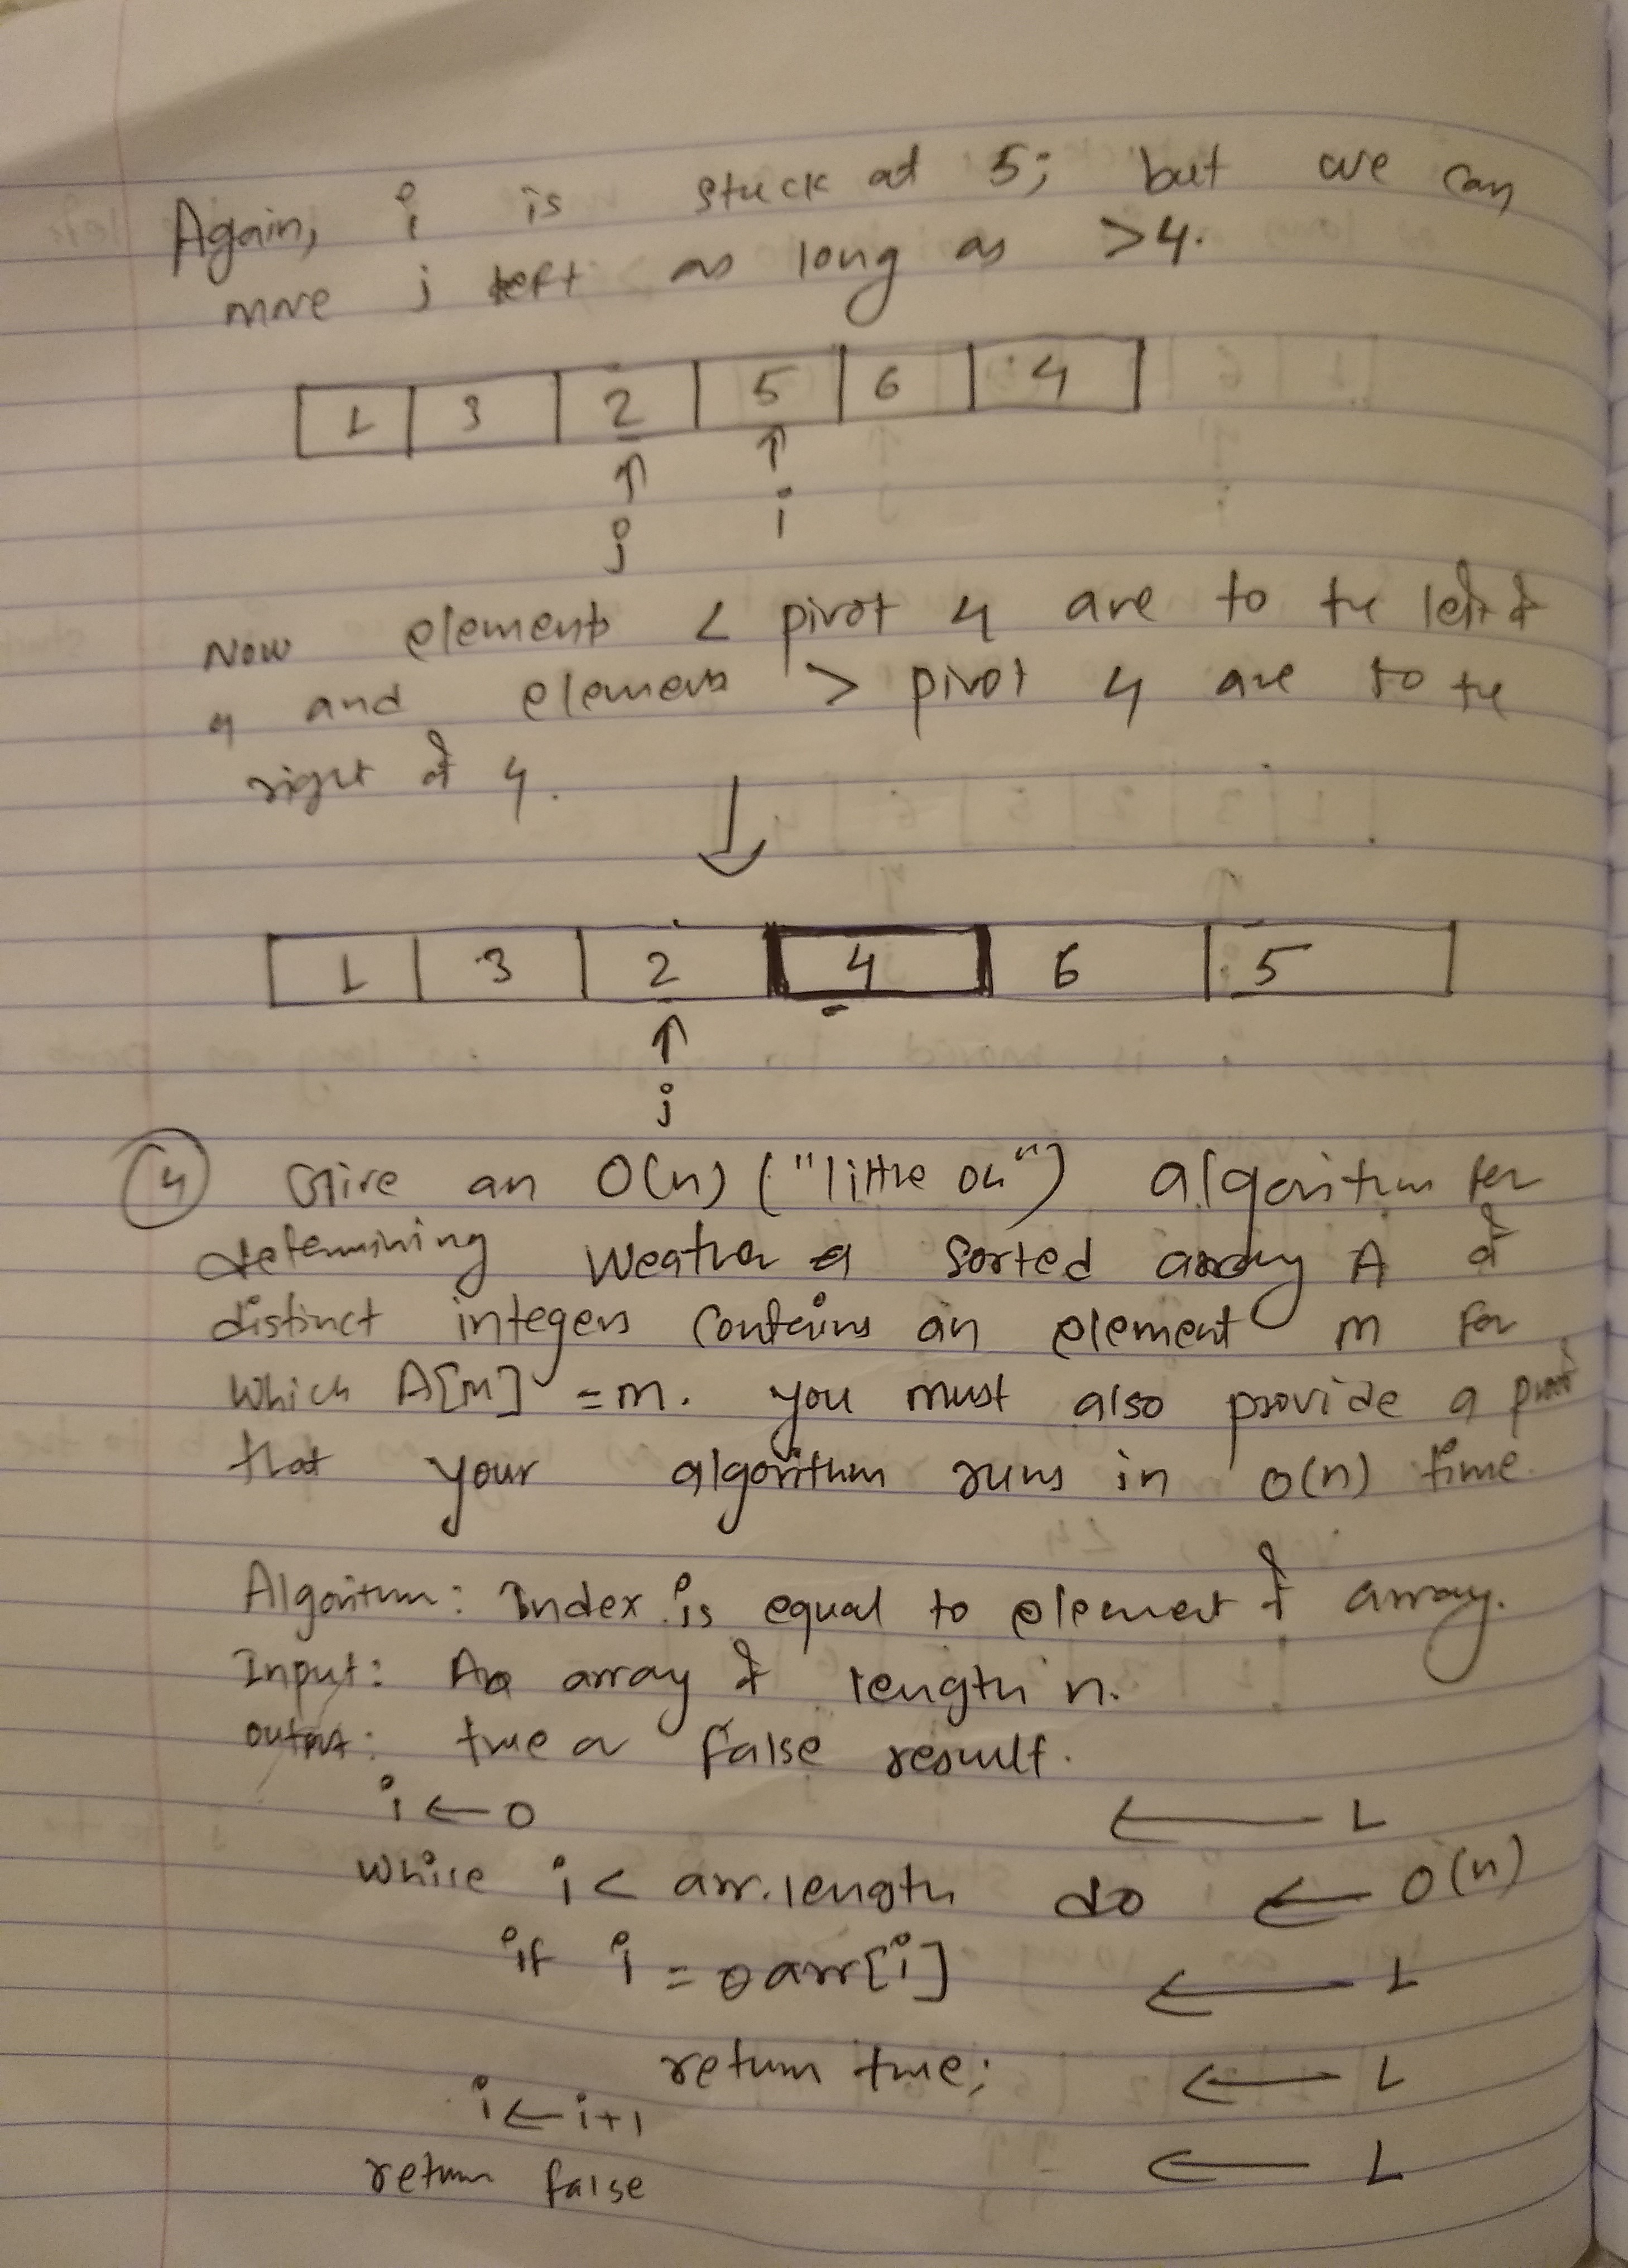 Again, i is stuck at 5; but we can
move j left as long as >4.
1 3 2 5 6 4
↑ ↑
j i
Now elements < pivot 4 are to the left of
4 and elements > pivot 4 are to the
right of 4.
↓
1 3 2 4 6 5
↑
j
④ Give an O(n) ("little oh") algorithm for
determining weather a sorted array A of
distinct integers contains an element m for
which A[m] = m. you must also provide a proof
that your algorithm runs in o(n) time.
Algorithm: Index is equal to element of array.
Input: An array of length n.
output: true or false result.
i ← 0 ← 1
while i < arr.length do ← O(n)
if i = arr[i] ← 1
return true; ← 1
i ← i+1
return false ← 1